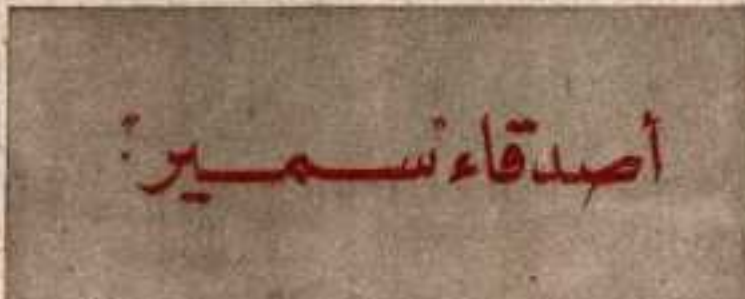 أصدقاء "سمير":